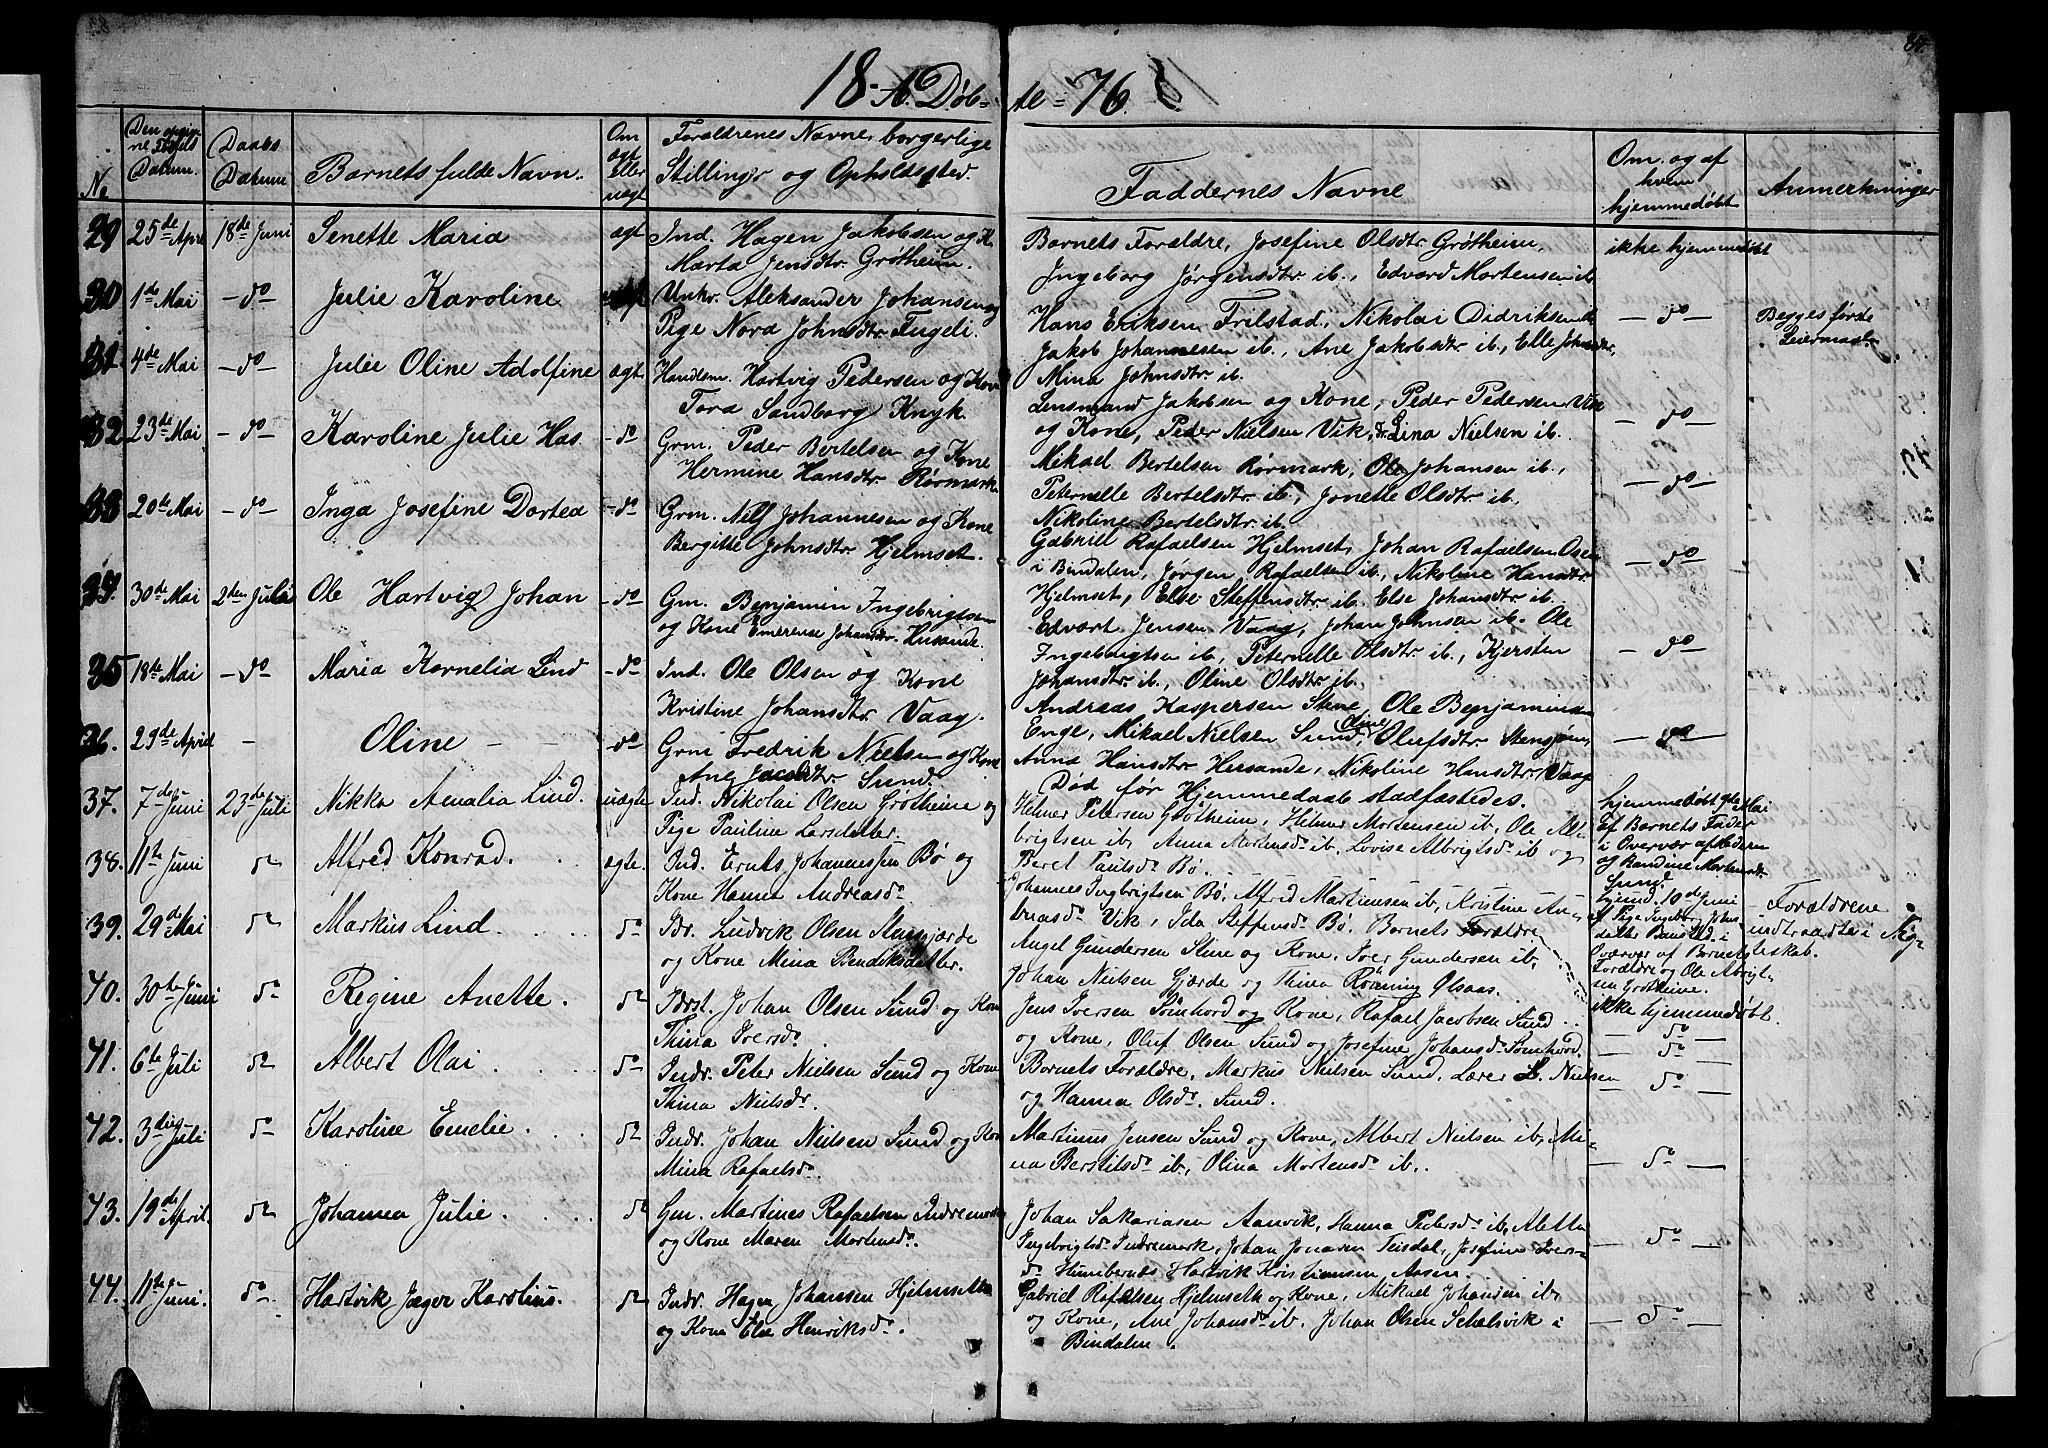 18-A. Døb- te- 76.
No
Den opgiv-
ne Fødsels
Datum.
Daabs
Datum
Barnets fulde Navn.
Om
ægt
eller
uægt
Forældrenes Navne, borgerlige
Stilling og Opholdssted.
Faddernes Navne
Om og af
hvem
hjemmedøbt
Anmerkninger
29 25de April 18de Juni Senette Maria ægt Ind. Hagen Jakobsen og K.
Marta Jensdtr. Grøtheim.
Barnets Forældre, Josefine Olsdtr. Grøtheim,
Ingeborg Jørgensdtr. ib., Edvard Mortensen ib.
ikke hjemmedøbt
30 1de Mai - do Julie Karoline Unkr. Aleksander Johansen og
Pige Nora Johnsdtr. Fugeli.
Hans Eriksen Frilstad, Nikolai Didriksen ib.
Jakob Johannesen ib., Ane Jakobsdtr. ib., Elle Johnsdtr.,
Mina Johnsdtr. ib.
- do - Begges første
Leiermaal
31 4de Mai - do - Julie Oline Adolfine ægt. Handlsm. Hartvig Pedersen og Kone
Tora Sandborg Knyk.
Lensmand Jakobsen og Kone, Peder Pedersen Vik
og Kone, Peder Nielsen Vik, Lina Nielsen ib.
- do -
32 23de Mai - do - Karoline Julie Has - do Grm. Peder Bertelsen og Kone
Hermine Hansdtr. Rørmark
Mikael Bertelsen Rørmark, Ole Johansen ib.,
Peternelle Bertelsdtr. ib., Jonette Olsdtr. ib.,
Nikoline Bertelsdtr. ib.
- do -
33 20de Mai - do - Inga Josefine Dortea - do Grm. Nils Johannesen og Kone
Bergitte Johnsdtr. Hjelmset.
Gabriel Rafaelsen Hjelmset, Johan Rafaelsen Osen
i Bindalen, Jørgen Rafaelsen ib., Nikoline Hansdtr.
Hjelmset, Else Steffensdtr. ib. Else Johansdtr. ib.
- do -
34. 30de Mai 2den Juli Ole Hartvig Johan - do Gm. Benjamin Ingebrigtsen
og Kone Emerense Johansdtr. Husande.
Edvart Jensen Vaag, Johan Johnsen ib. Ole
Ingebrigtsen ib., Peternelle Olsdtr. ib., Kjersten
Johansdtr. ib., Oline Olsdtr. ib.
- do -
35 18de Mai - do - Maria Kornelia Lind - do Ind. Ole Olsen og Kone
Kristine Johansdtr. Vaag.
Andreas Kaspersen Stene, Ole Benjaminsen
Enge, Mikael Nielsen Sund, Oline Olufsdtr.
Anna Hansdtr. Hersande, Nikoline Hansdtr. Vaag
- do -
36. 29de April - Oline - do Grm Fredrik Nielsen og Kone
Ane Jacobdtr Sund
Død før Hjemmedaab stadfæstedes.
37. 7de Juni 23de Juli Nikka Amalia Lind. uægte Ind. Nikolai Olsen Grøtheim og
Pige Pauline Larsdatter.
Helmer Petersen Grøtheim, Helmer Mortensen ib, Ole Al-
brigtsen ib, Anna Mortensd. ib. Lovise Albrigtsd. ib og
Beret Paulsd. Bø.
hjemmedøbt 9de Mai
af Barnets Fader
i Overvær af Moderen
og Randine Mortensdtr
Sund.
38. 11te Juni do Alfred Konrad. ægte. Ind. Johannessen Bø og
Kone Hanna Andreasd.
Johannes Ingbrigtsen Bø, Alfred Martinusen ib, Kristine An-
dreasd. Vik, Ida Steffensd. Bø. Barnets Forældre
hjemd. 10de Juni
af Pige Ingeborg Johns
datter i
Overvær af Barnets
Forældre og Ole Albrigt-
sen Grøtheim.
Forældrene
indtraadte i Æg-
teskab.
39. 29de Mai do Markus Lind. do Idr. Ludvik Olsen Stensgjærde
og Kone Mina Bendiksdatter.
Angel Gundersen Stene og Kone, Iver Gundersen ib,
Johan Nielsen Gjærde og Thina Rønning Olsaas.
ikke hjemmedøbt.
40. 30te Juni do Regine Anette. do Idrst. Johan Olsen Sund og Kone
Thina Iversd.
Jens Iversen Somhovd og Kone, Rafael Jacobsen Sund
og Kone, Oluf Olsen Sund og Josefine Johansd. Somhovd.
- do -
41. 6te Juli do Albert Olai do Indr. Peter Nielsen Sund og Kone
Thina Nielsd.
Barnets Forældre, Markus Nielsen Sund, Lærer L. Nielsen
og Hanna Olsd. Sund.
- do -
42. 3die Juli do Karoline Emelie. do Indr. Johan Nielsen Sund og Kone
Mina Rafaelsd.
Martinus Jensen Sund og Kone, Albert Nielsen ib, Mi-
na ib, Olina Mortensd. ib.
- do -
43. 19de April. do Johanna Julie. do Gm. Martines Rafaelsen Indremork
og Kone Maren Mortensd.
Johan Sakariasen Aanvik, Hanna Pedersd. ib, Aletta
Ingebrigtsd. Indremork, Johan Jonasen Teisdal, Josefine Ivers-
d. Hartvik Kristiansen Aasen.
- do -
44. 11te Juni. do Hartvik Jæger Karolius. do Indr. Hagen Johansen Hjelmseth
og Kone Else Henriksd.
Gabriel Rafaelsen Hjelmseth og Kone, Mikael Johansen ib
og Kone, Ane Johansd. ib. Johan Olsen i
Bindalen.
- do -